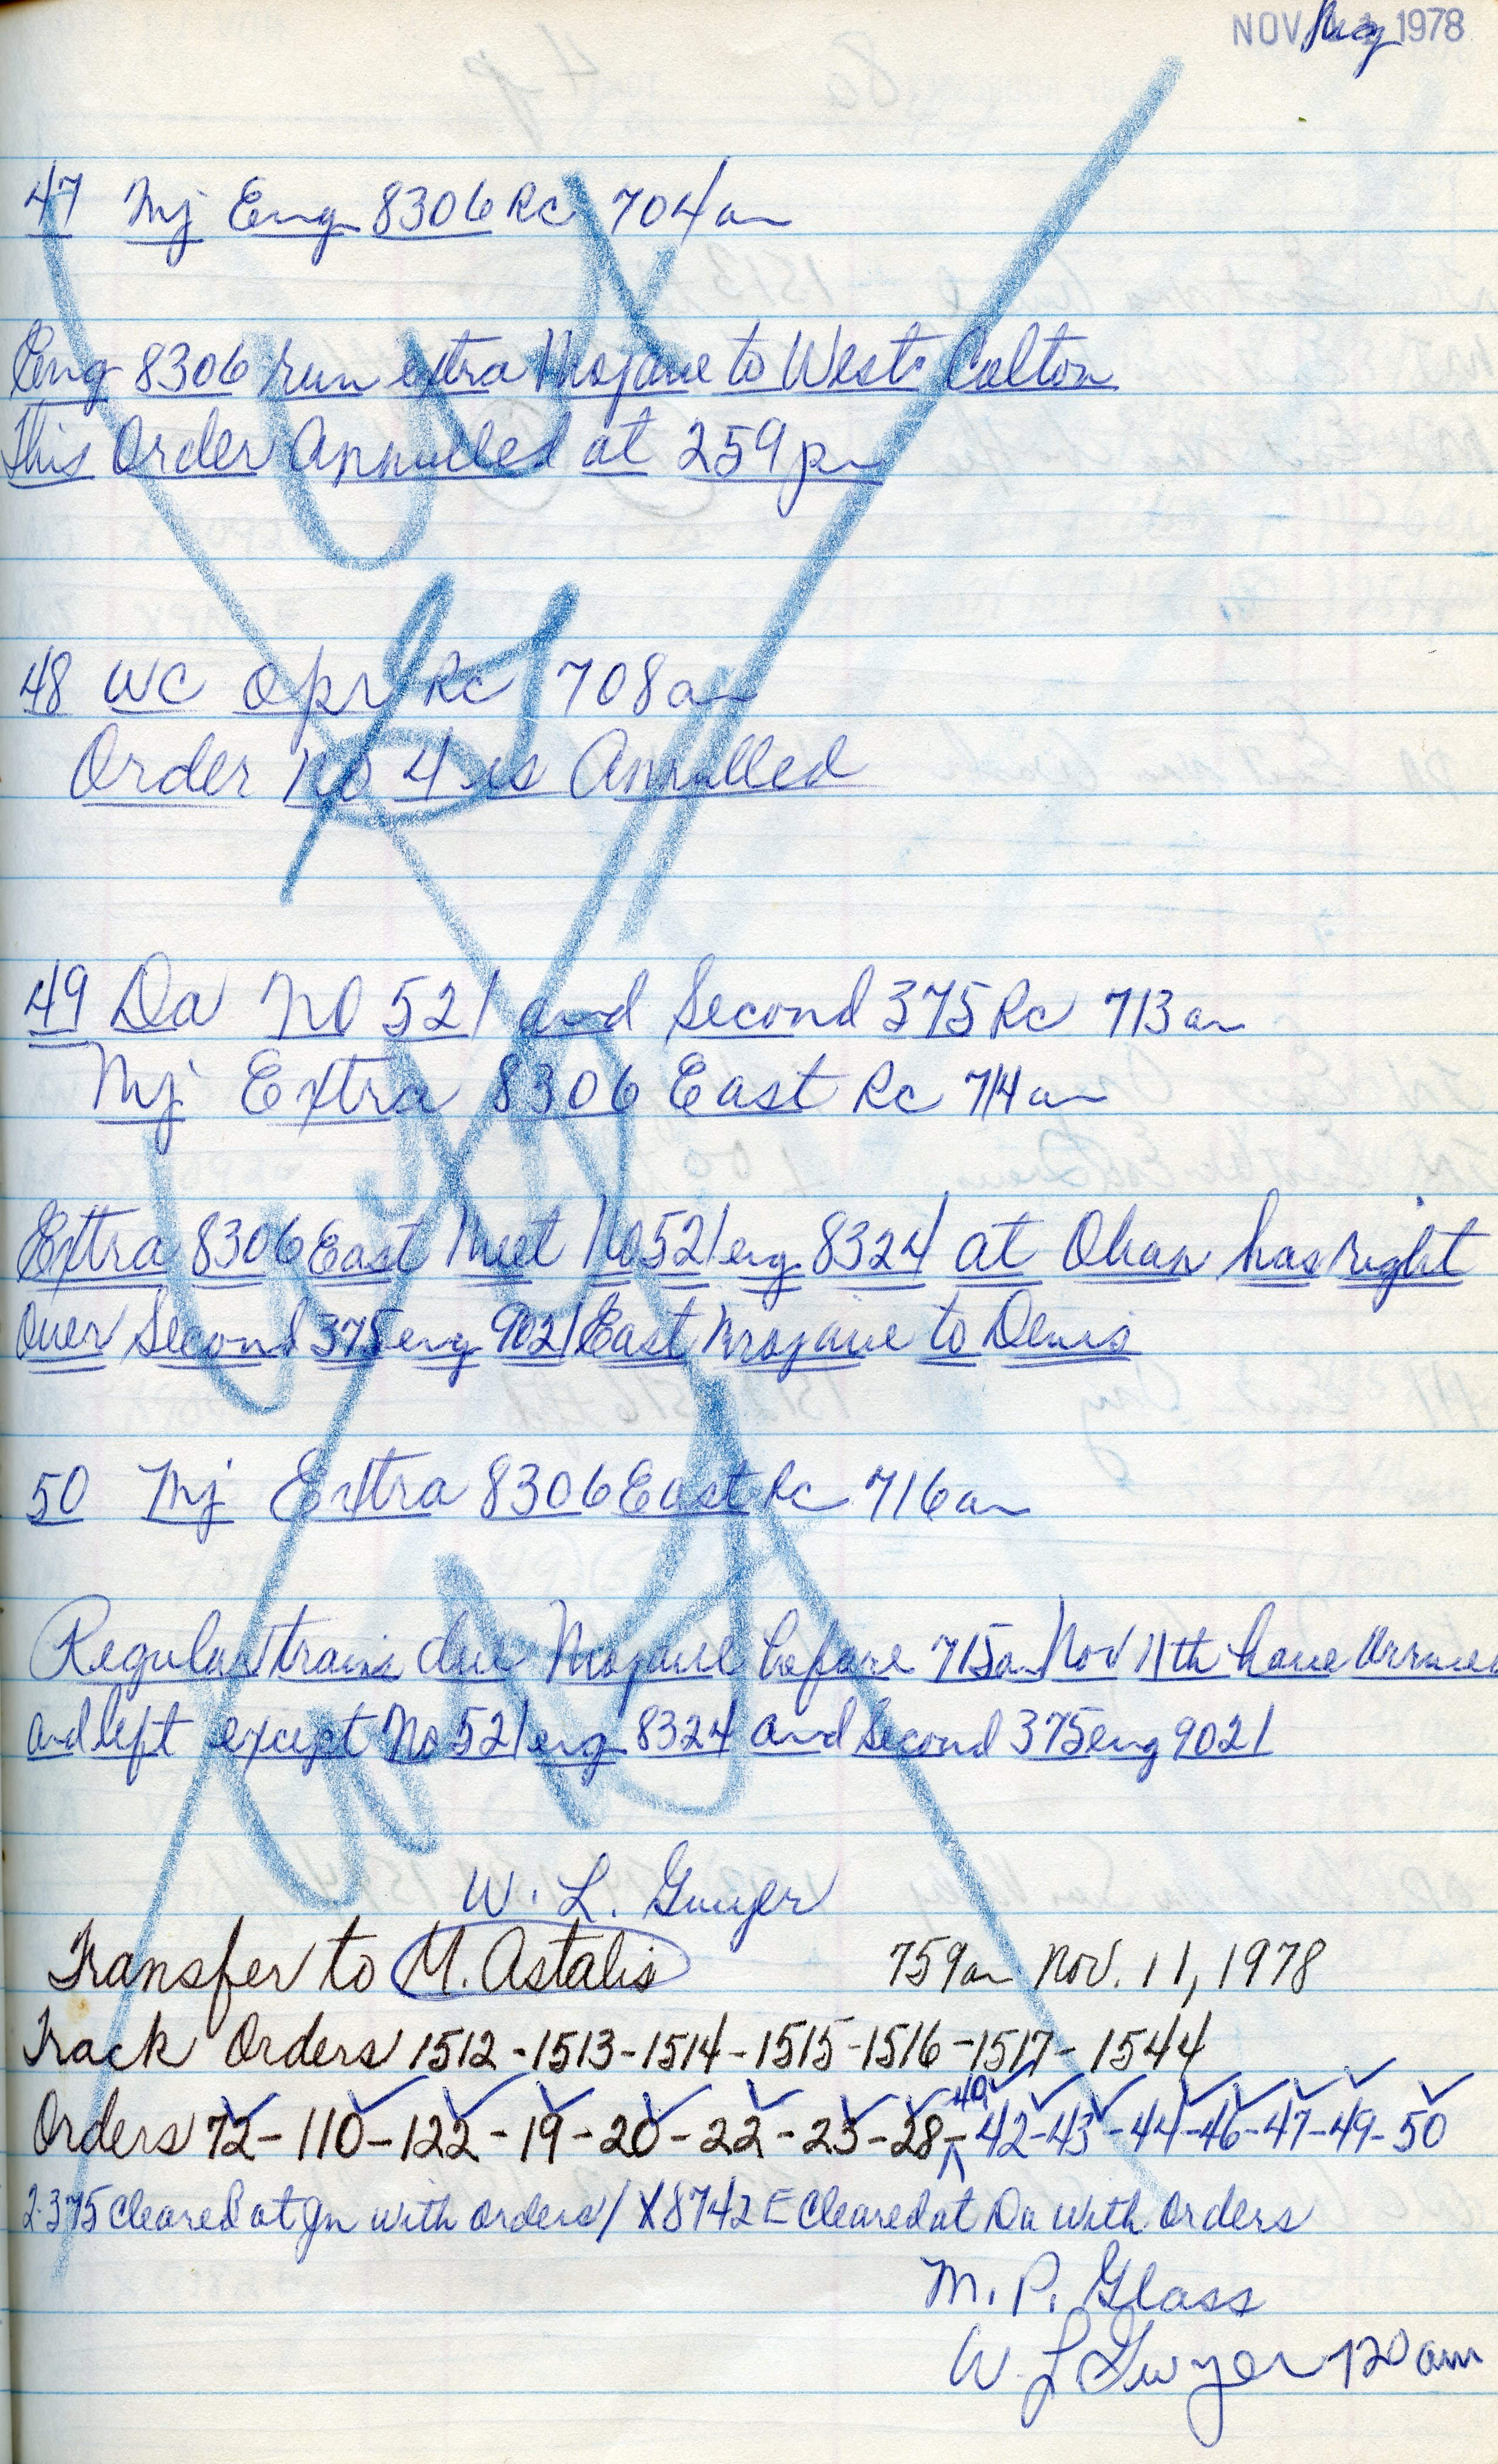 NOV 1978
47 Mj Eng 8306 Rc 704am
Eng 8306 run extra Mojave to West Colton
This Order Annulled at 259pm
48 WC Opr Rc 708am
Order No 4 is Annulled
49 Da No 521 and Second 375 Rc 713am
Mj Extra 8306 East Rc 714am
Extra 8306 East Meet No 521 eng 8324 at Oban has right
over Second 375 eng 9021 East Mojave to Denis
50 Mj Extra 8306 East Rc 716am
Regular trains due Mojave before 715am Nov 11th have Arrived
and left except No 521 eng 8324 and Second 375 eng 9021
W. L. Gwyer
Transfer to M. Astalis 759am Nov. 11, 1978
Track Orders 1512-1513-1514-1515-1516-1517-1544
Orders 72-110-122-19-20-22-23-28-40-42-43-44-46-47-49-50
2-375 Cleared at Jn with orders / X8742E Cleared at Da with Orders
M. P. Glass
W L Gwyer 720am